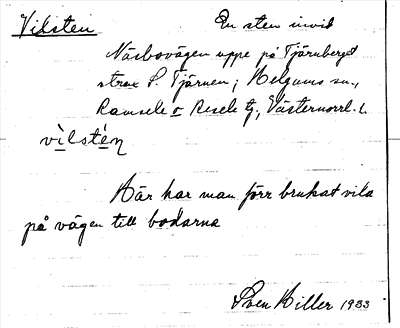 Vilsten En sten invid
Näsbovägen uppe på Tjärnberget
strax S. Tjärnen; Helgums sn.,
Ramsele o Resele tg, Västernorrl. l.
vilstén
Här har man förr brukat vila
på vägen till bodarna
Sven Hiller 1933